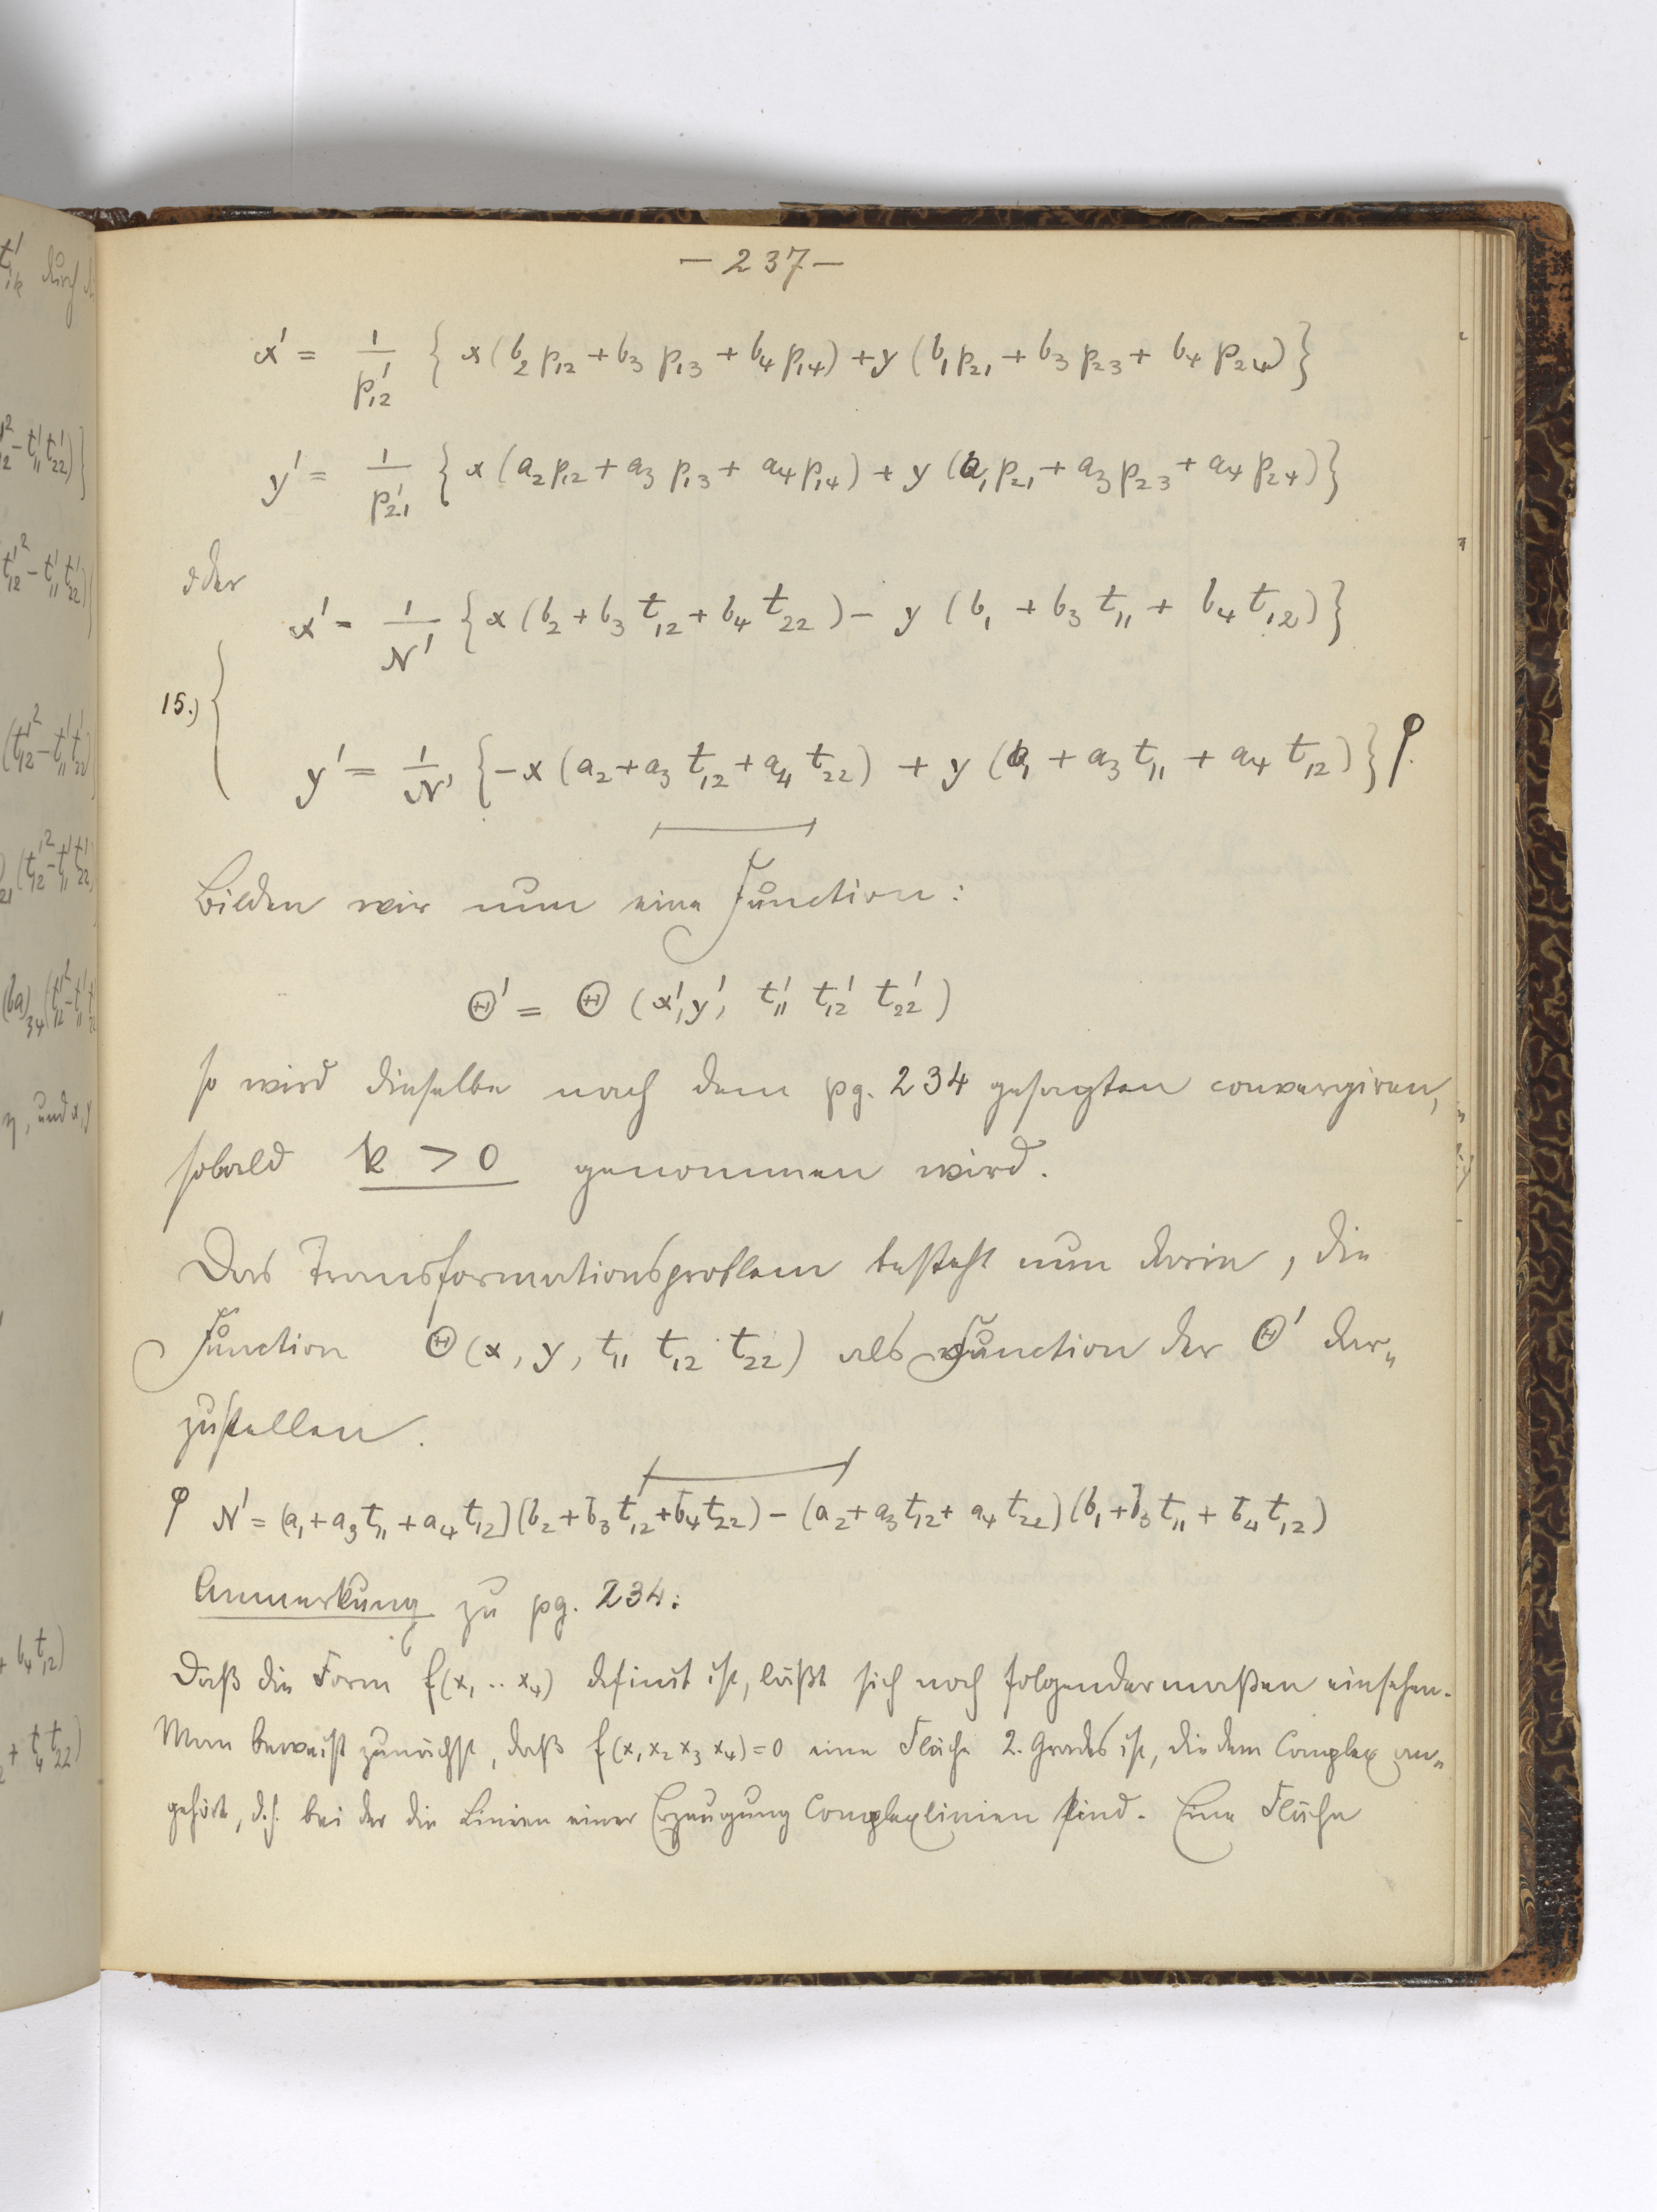 — 237 —
x' = 1/p'₁₂ { x (b₂ p₁₂ + b₃ p₁₃ + b₄ p₁₄) + y (b₁ p₂₁ + b₃ p₂₃ + b₄ p₂₄) }
y' = 1/p'₂₁ { x (a₂ p₁₂ + a₃ p₁₃ + a₄ p₁₄) + y (a₁ p₂₁ + a₃ p₂₃ + a₄ p₂₄) }
oder
x' = 1/N' { x (b₂ + b₃ t₁₂ + b₄ t₂₂) − y (b₁ + b₃ t₁₁ + b₄ t₁₂) }
15.)
y' = 1/N' { −x (a₂ + a₃ t₁₂ + a₄ t₂₂) + y (a₁ + a₃ t₁₁ + a₄ t₁₂) } φ.
Bilden wir nun eine Function:
Θ' = Θ (x', y', t'₁₁ t'₁₂ t'₂₂)
so wird dieselbe nach dem pg. 234 gesagten convergiren,
sobald k > 0 genommen wird.
Das Transformationsproblem besteht nun darin, die
Function Θ (x, y, t₁₁ t₁₂ t₂₂) als Function der Θ' dar„
zustellen.
φ N' = (a₁ + a₃ t₁₁ + a₄ t₁₂) (b₂ + b₃ t₁₂ + b₄ t₂₂) − (a₂ + a₃ t₁₂ + a₄ t₂₂) (b₁ + b₃ t₁₁ + b₄ t₁₂)
Anmerkung zu pg. 234:
Daß die Form f(x₁ .. x₄) definit ist, läßt sich noch folgendermaßen einsehen.
Man beweist zunächst, daß f(x₁ x₂ x₃ x₄) = 0 eine Fläche 2. Grades ist, die dem Complex an„
gehört, d.h. bei der die Linien einer Erzeugung Complexlinien sind. Eine Fläche